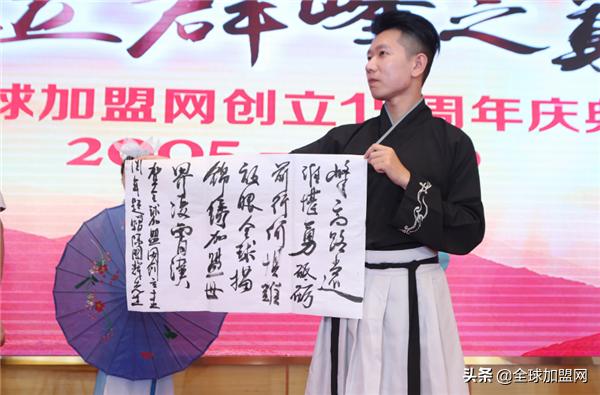 立群峰之
球加盟网创立1周年庆典
2005
峰高路远
谁堪勇砥砺
前行何惧难
放眼全球描
锦绣加盟世
界凌霄汉
全球加盟网创立
周年
先生
头条 @全球加盟网